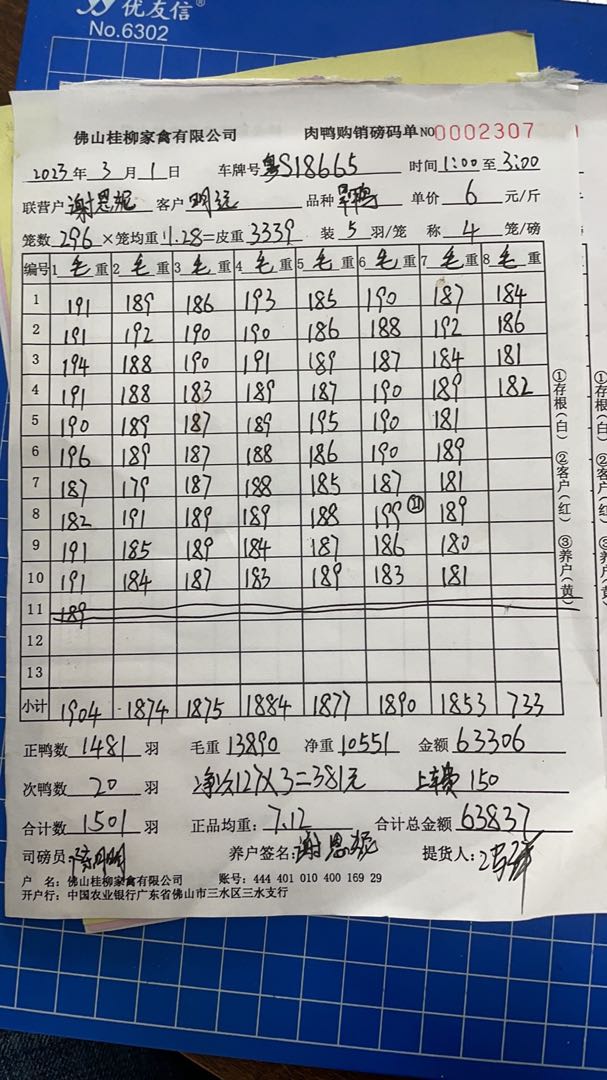 优友信
No.6302
佛山桂柳家禽有限公司 肉鸭购销磅码单 NO0002307
2023年3月1日 车牌号 粤S18665 时间1:00至3:00
联营户 谢恩妮 客户 明远 品种 单价 6 元/斤
笼数296×笼均重11.28=皮重3339 装5羽/笼 称4笼/磅
编号 1毛重 2毛重 3毛重 4毛重 5毛重 6毛重 7毛重 8毛重
1 191 189 186 193 185 190 187 184
2 191 192 190 190 186 188 192 186
3 194 188 190 191 189 187 184 181
4 191 188 183 189 187 190 189 182
5 190 189 187 189 195 190 181
6 196 189 187 188 186 190 189
7 187 179 187 188 185 187 181
8 182 191 189 189 188 199 ㉑ 189
9 191 185 189 184 187 186 180
10 191 184 187 183 189 183 181
11 189
12
13
小计 1904 1874 1875 1884 1877 1890 1853 733
①存根(白) ②客户(红) ③养户(黄)
正鸭数 1481 羽 毛重 13890 净重 10551 金额 63306
次鸭数 20 羽 127×3=381元 上车费 150
合计数 1501 羽 正品均重: 7.12 合计总金额 63837
司磅员: 养户签名: 谢恩妮 提货人:
户 名: 佛山桂柳家禽有限公司 账号: 444 401 010 400 169 29
开户行: 中国农业银行广东省佛山市三水区三水支行